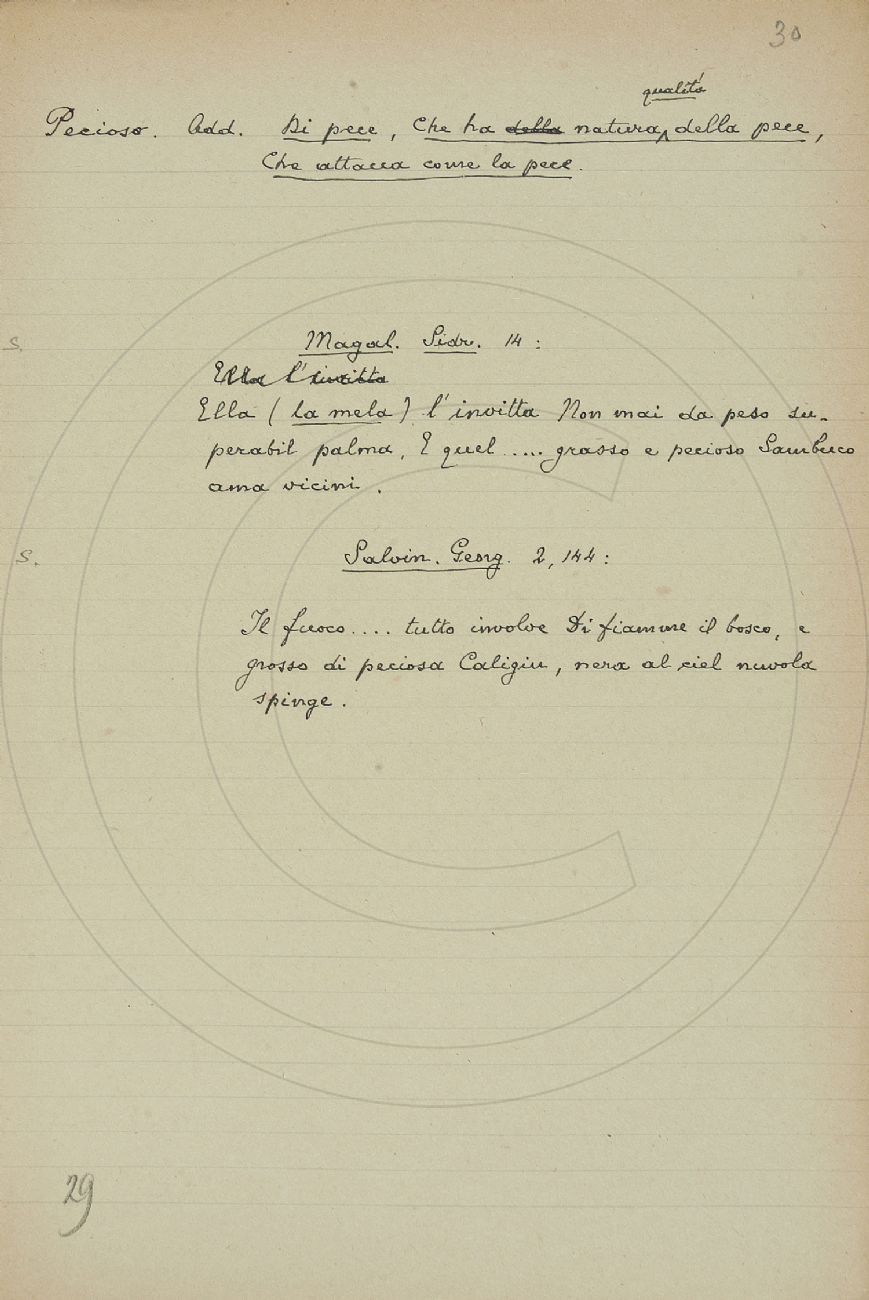 30
qualità
Pecioso. Add. Di pece, Che ha della natura della pece,
Che attacca come la pece.
S. Magal. Sidr. 14:
Ella l'invitta
Ella (la mela) l'invitta Non mai da peso su-
perabil palma, E quel ..... grasso e pecioso Sambuco
ama vicini.
S. Salvin. Georg. 2, 144:
Il fuoco .... tutto involve Di fiamme il bosco, e
grosso di peciosa Caligin, nera al ciel nuvola
spinge.
29